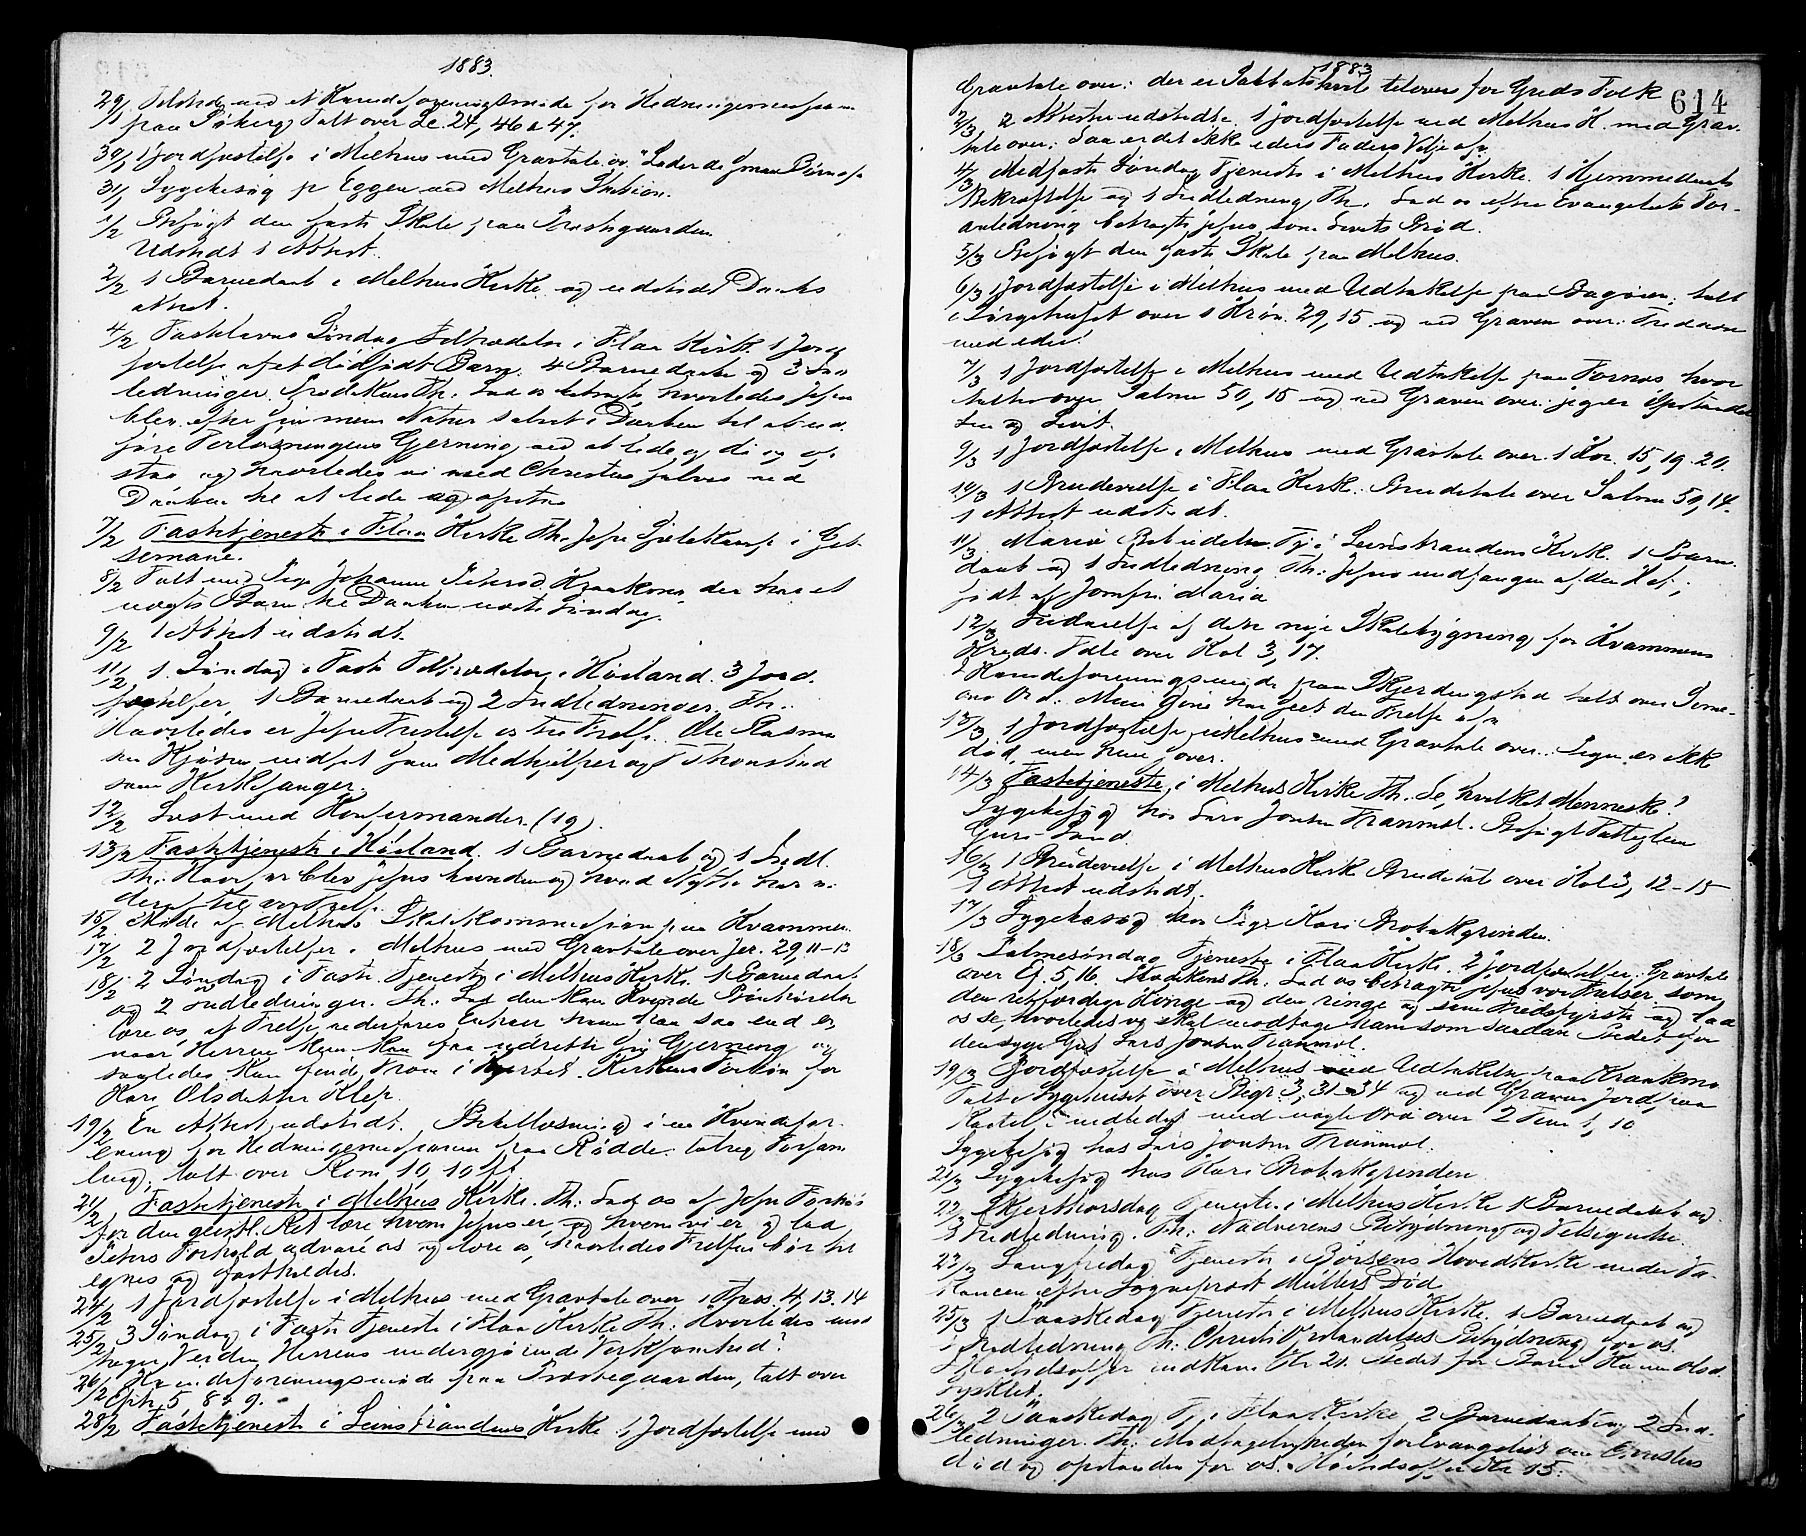 1883.
29/1 Tilstede ved et Kvindeforeningsmøde for Hedningemissionen
paa Søberg, Talt over Lc. 24, 46 & 47.
30/1 1 Jordfæstelse i Melhus med Gravtale ov. "Lader de smaa Børn &c
31/1 Sygebesøg p Eggen ved Melhus Station.
1/2 Besøgt den faste Skole paa Prestegaarden
Udstedt 1 Attest.
2/2 1 Barnedaab i Melhus Kirke og udstedt Daabs
attest.
4/2 Fastelavns Søndag i Flaa Kirke. 1 Jord
fæstelse af et dødfødt Barn. 4 Barnedaab og 3 Ind
ledninger. Prædikens Th. Lad os betragte, hvorledes Jesus
blev efter sin menn. Natur salvet i Daaben til at ud
føre Forløsningens Gjerning ved at lide og dø og op
staa og hvorledes vi med Christus salves ved
Daaben til at lide og opstaa
7/2 Fastetjeneste i Flaa Kirke Th. Jesu Sjælekamp i Geth
semane.
8/2 Talt med Pige Johanne der har et
uægte Barn til Daaben næste Søndag.
9/2 1 Attest udstedt.
11/2 1. Søndag i Faste i Høiland. 3 Jord
fæstelser, 1 Barnedaab og 2 Indledninger. Th.:
Hvorledes er Jesu Fristelse os til Frelse. Ole Rasmus
sen indsat som Medhjælper og
som Kirkesanger.
12/2 Læst med Konfirmander (19).
13/2 Fastetjeneste i Høiland. 1 Barnedaab og 1 Indl.
Th: Hvorfor blev Jesus bunden og hvad Nytte har vi
deraf til vor Frelse.
15/2 Møde af Melhus Skolekommission paa Kvammen.
17/2 2 Jordfæstelser i Melhus med Gravtale over Jer. 29, 11-13
18/2 2 Søndag i Faste Tjeneste i Melhus Kirke. 1 Barnedaab
og 2 Indledninger. Th: Lad den Kan. Kvinde
lære os, at Frelse vederfares Enhver hvem han saa end er
naar Herren kun kan faa udrette sin Gjerning og
saaledes kan finde Troen i Hjertet. Kirkens Forbøn for
Kari Olsdatter Klep.
19/2 En Attest udstedt. Bibellæsning i en Kvindefor
ening for Hedningemissionen paa Rødde. talrig Forsam
ling; talt over Rom. 10, 10 ff.
21/2 Fastetjeneste i Melhus Kirke. Th: Lad os af Jesu Forhør
for den geistl. Ret lære hvem Jesus er, og hvem vi er og lad
Peters Forhold advare os og lære os, hvorledes Frelsen bør til
egnes og fastholdes.
24/2 1 Jordfæstelse i Melhus med Gravtale over 1 Thess. 4, 13. 14
25/2 3 Søndag i Faste Tjeneste i Flaa Kirke Th: Hvorledes mod
tager Verden Herrens undergjørende Virksomhed?
26/2 Kvindeforeningsmøde paa Præstegaarden, talt over
Eph. 5, 8 & 9.
28/2 Fastetjeneste i Leinstrandens Kirke. 1 Jordfæstelse med
1883
614
Gravtale over: der er Sabbatshvile tilovers for Guds Folk
2/3 2 Attester udstedte. 1 Jordfæstelse ved Melhus K. med Grav
tale over: Saa er det ikke eders Faders Vilje &c
4/3 Midfaste Søndag Tjeneste i Melhus Kirke. 1 Hjemmedaabs
Bekræftelse og 1 Indledning, Th. Lad os efter Evangeliets For-
anledning betragte Jesus som Livets Brød.
5/3 Besøgt den faste Skole paa Melhus.
6/3 1 Jordfæstelse i Melhus med Udtakelse paa Bagøien; talt
i Sørgehuset over 1 Krøn. 29, 15 og ved Graven over: Fred være
med eder.
7/3 1 Jordfæstelse i Melhus med Udtakelse paa Fornes hvor
taltes over Salme 50, 15 og ved Graven over: jeg er Opstandel
sen og Livet.
9/3 1 Jordfæstelse i Melhus med Gravtale over 1 Kor. 15, 19. 20.
10/3 1 Brudevielse i Flaa Kirke. Brudetale over Salme 50, 14.
1 Attest udstedt.
11/3 Mariæ Bebudelse Tj. i Leinstrandens Kirke. 1 Barne
daab og 1 Indledning Th: Jesus undfangen af den H. Aa;
født af Jomfru Maria
12/3 Indvielse af den nye Skolebygning for Kvammens
Kreds. Tale over Kol 3, 17.
Kvindeforeningsmøde paa Skjerdingstad talt over Sime-
ons Ord: Mine Øine har seet din Frelse &c
13/3 1 Jordfæstelse i Melhus med Gravtale over: Pigen er ikke
død, men hun sover.
14/3 Fastetjeneste i Melhus Kirke Th. Se, hvilket Menneske!
Sygebesøg hos Lars Jonsen Tranmæl. Besøgt
16/3 1 Brudevielse i Melhus Kirke Brudetale over Kol 3, 12-15
1 Attest udstedt.
17/3 Sygebesøg hos Pige Kari
18/3 Palmesøndag Tjeneste i Flaa Kirke. 2 Jordfæstelser: Gravtale
over 5, 16. Prædikens Th. Lad os betragte Jesus vor Frelser som
den retfærdige Konge og den ringe og som Fredsfyrste og lad
os se, hvorledes vi skal modtage ham som saadan. Bedet for
den syge Lars Jonsen Tranmæl.
19/3 Jordfæstelse i Melhus med Udtakelse paa
Talt i Sygehuset over 3, 31-34 og ved Graven Jordpaa
nedledt med nogle Ord over 2 Tim 1, 10
Sygebesøg hos Lars Jonsen Tranmæl.
21/3 Sygebesøg hos Kari
22/3 Skjærthorsdag Tjeneste i Melhus Kirke 1 Barnedaab og
3 Indledning. Th: Nadverens Betydning og Velsignelse.
23/3 Langfredag Tjeneste i Børsens Hovedkirke under Va-
kancen efter Sogneprest Müllers Død
25/3 1 Paaskedag Tjeneste i Melhus Kirke. 1 Barnedaab og
Indledning Th: Christi Opstandelses Betydning for os.
Høitidsoffer indkom Kr 21. Bedet for
26/3 2 Paaskedag Tj. i Flaa Kirke 2 Barnedaab og 2 Ind
ledninger. Th: Modtageligheden for Evangeliet om Christus
død og opstanden for os. Høitidsoffer Kr 15.